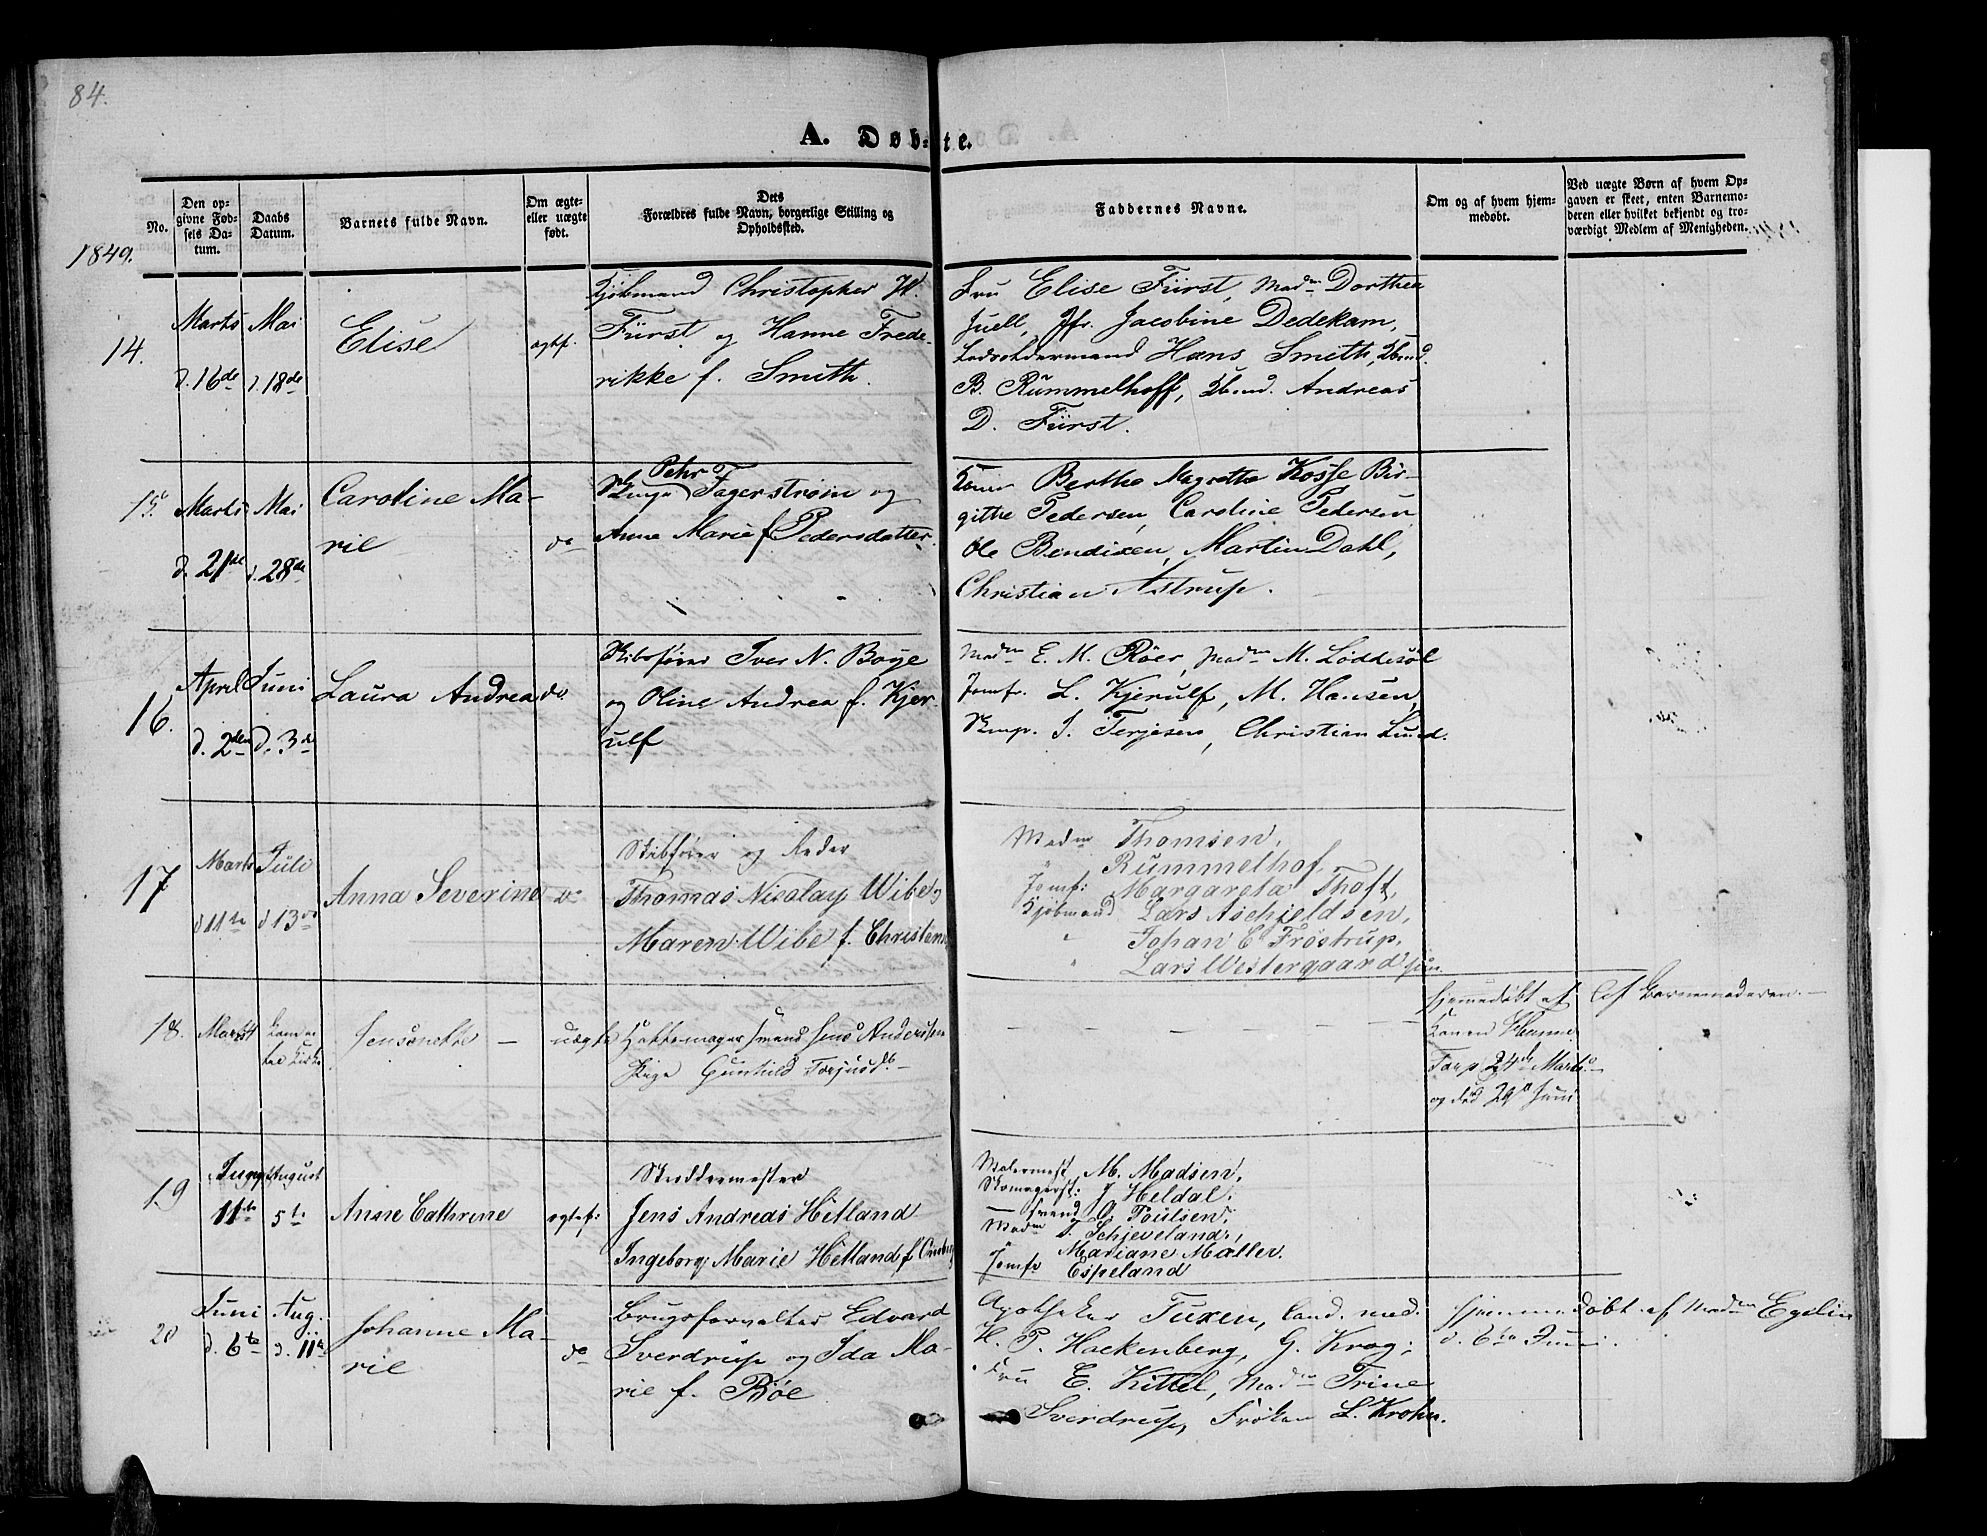 84.
A. Døb-te.
No.
Den op-
givne Fød-
sels Da-
tum.
Daabs
Datum.
Barnets fulde Navn.
Om ægte-
eller uægte
født.
Dets
Forældres fulde Navn, borgerlige Stilling og
Opholdssted.
Faddernes Navne.
Om og af hvem hjem-
medøbt.
Ved uægte Børn af hvem Op-
gaven er skeet, enten Barnemo-
deren eller hvilket bekjendt og tro-
værdigt Medlem af Menigheden.
1849.
14.
Marts
d. 16de
Mai
d. 18de
Elise
ægtef.
Kjøbmand Christopher W.
Fürst og Hanne Frede-
rikke f. Smith.
Fru Elise Fürst, Madm Dorthea
Juell, Jfr. Jacobine Dedekam,
Lodsoldermand Hans Smith,
B. Rummelhoff, Andreas
D. Fürst.
15.
Marts
d. 21de
Mai
d. 28de
Caroline Ma-
rie
do
Petr
Fagerstrøm og
Anne Marie f Pedersdatter.
Koner Berthe Magrethe Kosse Bir-
githe Pedersen, Caroline Pedersen
Ole Bendixen, Martin Dahl,
Christian Astrup.
16.
April
d. 2den
Juni
d. 3de
Laura Andrea
do.
Skibsfører Iver N. Boye
og Oline Andrea f. Kjer-
ulf
Madm E. M. Röer, Madm M. Löddesöl
Jomfr. L. Kjerulf, M. Hansen,
Skmp. J. Terjesen, Christian Lund.
17
Marts
d 11te
Juli
d 13de
Anna Severine
do
Skibsfører og Reder
Thomas Nicolay Wibe og
Maren Wibe f. Christens
Madm Thomsen,
" Rummelhof,
Jomfr: Margareta Thoft,
Kjøbmand Lars Aschjeldsen,
" Johan C Frøstrup,
" Lars Westergaard jun.
18.
Marts
Jensenette —
uægte
Jens Anderssen
Pige Gunhild Torjusd. —
Hjemmedøbt af
Konen Hanne
Torp 24de Marts
og død 29de Juni
Af Barnemoderen. —
19
11te
August
5te
Anne Cathrine
ægtef:
Jens Andreas Hetland
Ingeborg Marie Hetland f
Malermest M. Madsen,
Skomagerst: J Heldal,
— Svend O. Poulsen,
Madm T. Schjeveland,
" Mariane Møller.
Jomfr Espeland
20
Juni
d. 6te
Aug.
d. 11te
Johanne Ma-
rie
do
Brugsforvalter Edvard
Sverdrup og Ida Ma-
rie f. Böe
Apotheker Tuxen, Cand. med.
H. P. Hackenberg, G. Krog;
Fru E. Kittel, Madm Trine
Sverdrup, Frøken L. Krohn.
Hjemmedøbt af Madm Egelin
d. 6te Juni.